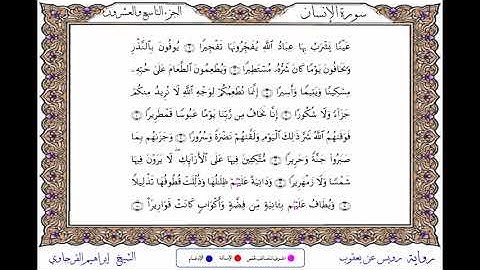 سورة الإنسان
الجزء التاسع والعشرون
عَيْنًا يَشْرَبُ بِهَا عِبَادُ اللَّهِ يُفَجِّرُونَهَا تَفْجِيرًا ۞ يُوفُونَ بِالنَّذْرِ
وَيَخَافُونَ يَوْمًا كَانَ شَرُّهُ مُسْتَطِيرًا ۞ وَيُطْعِمُونَ الطَّعَامَ عَلَىٰ حُبِّهِ
مِسْكِينًا وَيَتِيمًا وَأَسِيرًا ۞ إِنَّمَا نُطْعِمُكُمْ لِوَجْهِ اللَّهِ لَا نُرِيدُ مِنكُمْ
جَزَاءً وَلَا شُكُورًا ۞ إِنَّا نَخَافُ مِن رَّبِّنَا يَوْمًا عَبُوسًا قَمْطَرِيرًا ۞
فَوَقَىٰهُمُ اللَّهُ شَرَّ ذَٰلِكَ الْيَوْمِ وَلَقَّىٰهُمْ نَضْرَةً وَسُرُورًا ۞ وَجَزَىٰهُم بِمَا
صَبَرُوا جَنَّةً وَحَرِيرًا ۞ مُتَّكِئِينَ فِيهَا عَلَى الْأَرَائِكِ ۖ لَا يَرَوْنَ فِيهَا
شَمْسًا وَلَا زَمْهَرِيرًا ۞ وَدَانِيَةً عَلَيْهُمْ ظِلَٰلُهَا وَذُلِّلَتْ قُطُوفُهَا تَذْلِيلًا
۞ وَيُطَافُ عَلَيْهُم بِـَٔانِيَةٍ مِّن فِضَّةٍ وَأَكْوَابٍ كَانَتْ قَوَارِيرَا ۞
رواية رويس عن يعقوب
الإمالة
الإدغام
الشيخ إبراهيم الفرجاوي